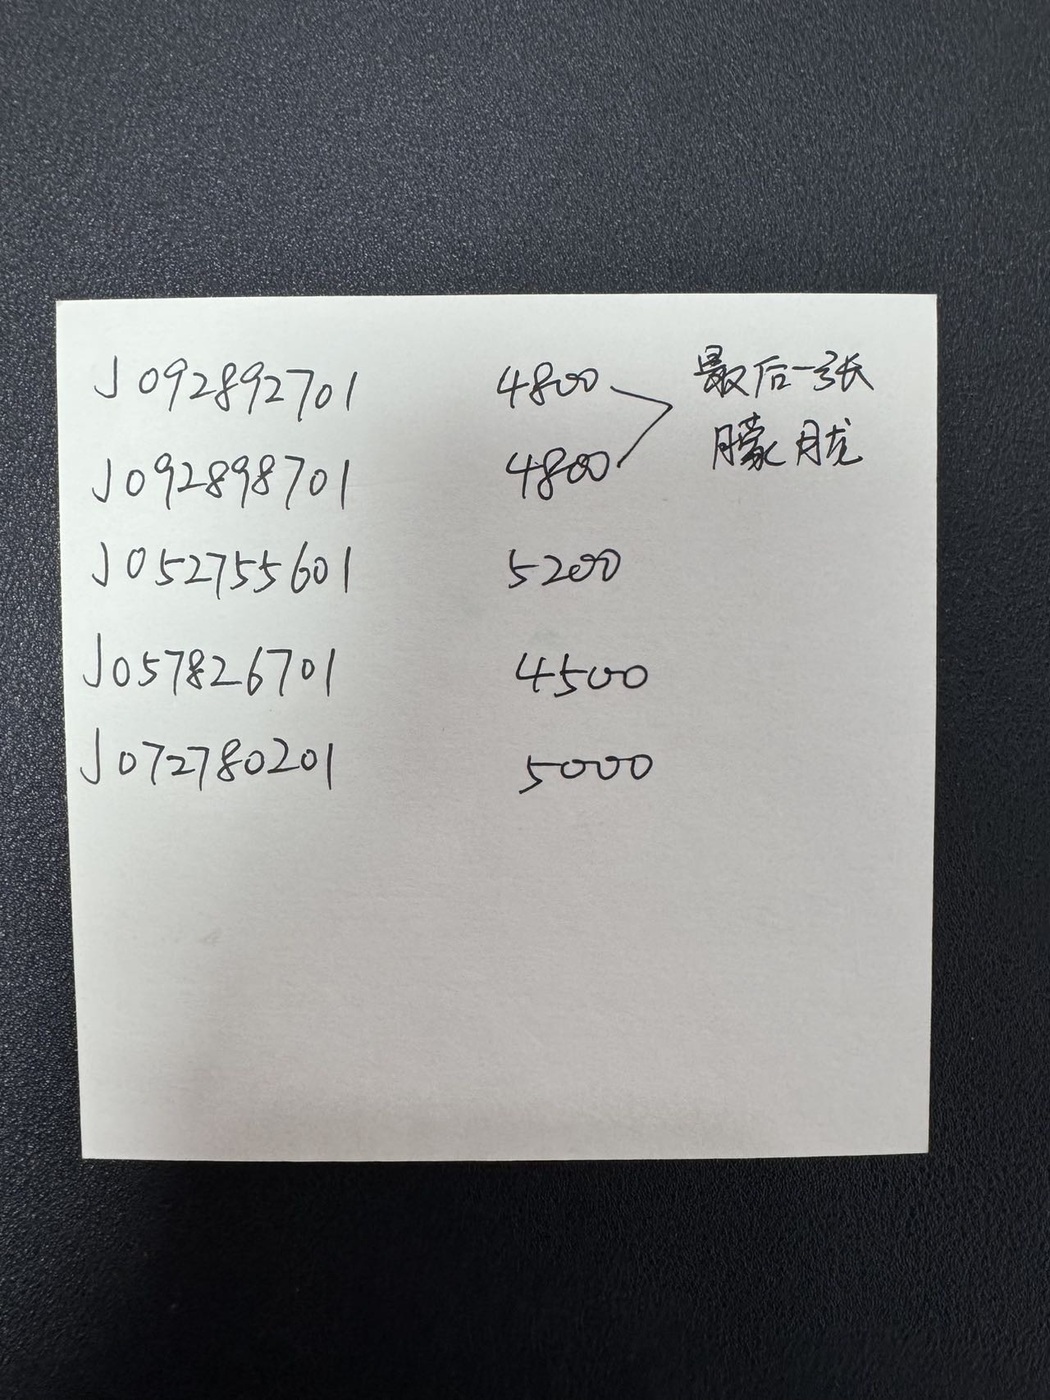 J092892701 4800 最后一张
朦胧
J092898701 4800
J052755601 5200
J057826701 4500
J072780201 5000